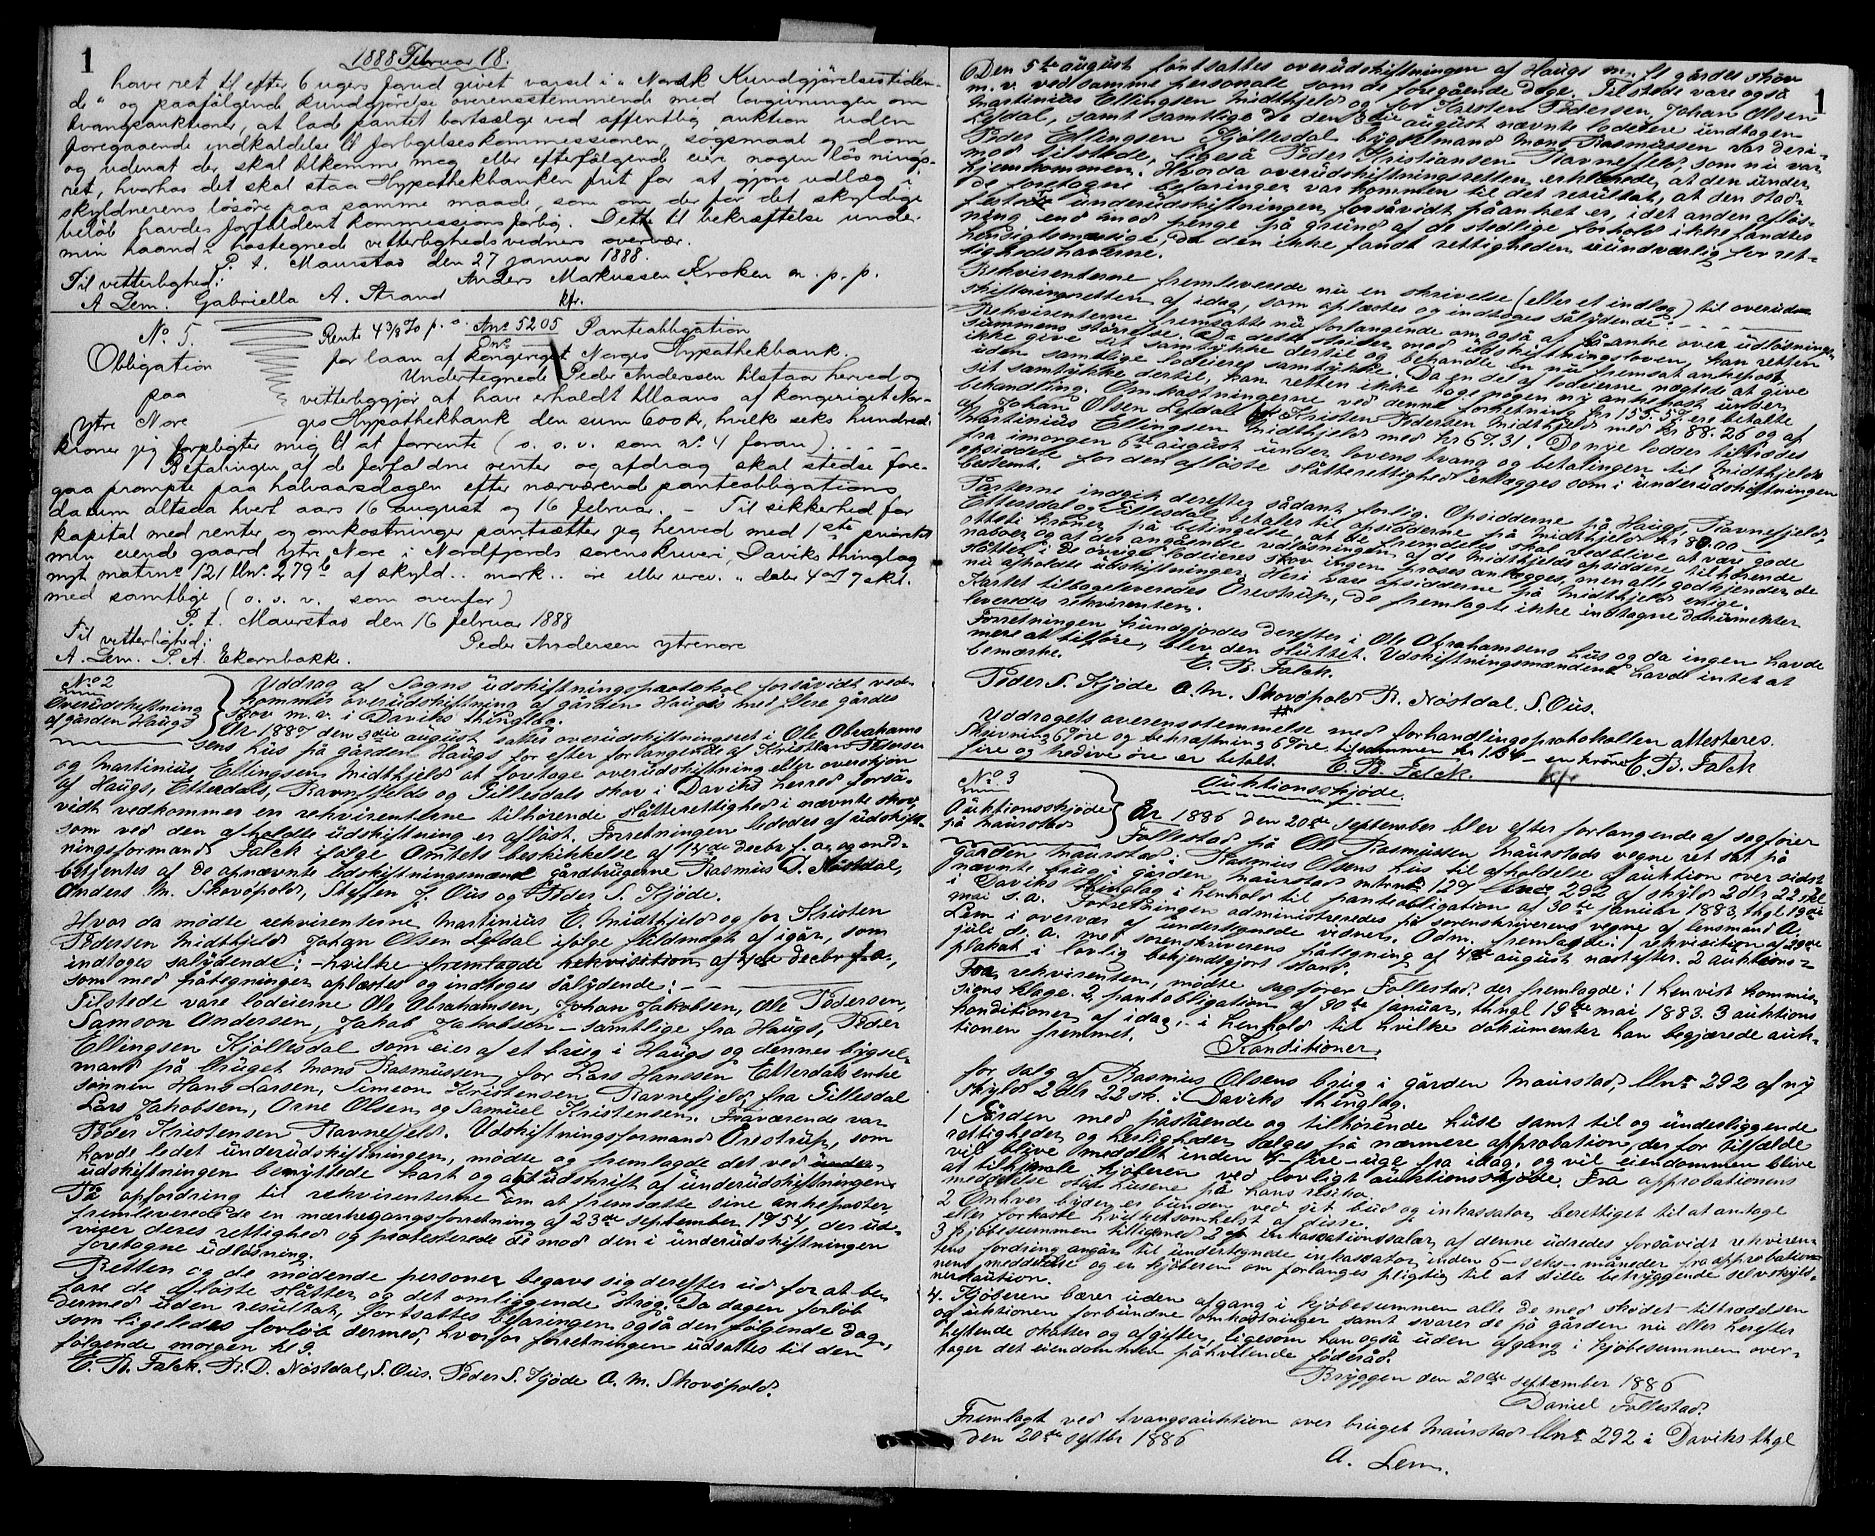 1
1888 Februar 18.
have ret til efter 6 ugers forud givet varsel i "Norsk Kundgjørelsestiden-
de" og paafølgende kundgjørelse overensstemmende med lovgivningen om
tvangsauktioner, at lade pantet bortsælge ved offentlig auktion uden
foregaaende indkaldelse til forligelseskommissionen, søgsmaal og dom,
og udenat der skal tilkomme mig eller efterfølgende eier nogen løsnings-
ret, hvorhos det skal staa Hypothekbanken frit for at gjøre udlæg i
skyldnerens løsøre paa samme maade, som om der for det skyldige
beløb havdes forfaldent kommissions forlig. Dette til bekræftelse under
min haand i hostegnede vitterlighedsvidners overvær.
P. t. Maurstad den 27 januar 1888.
Anders Markussen Kroken m. p. p.
Til vitterlighed:
A Lem. Gabriella A. Strand
kfr.
No 5.
Obligation
paa
ytre Nore
Rente 4 3/8 % p. a. Ano 5205 Panteobligation
for laan af kongeriget Norges Hypothekbank.
Undertegnede Peder Andersen tilstaar herved og
vitterliggjør at have erholdt tillaans af kongeriget Nor-
ges Hypothekbank den sum 600 k, hvilke seks hundrede
kroner jeg forpligter mig til at forrente (o. s. v. som no 4 foran)
Betalingen af de forfaldne renter og afdrag skal stedse fore-
gaa prompte paa halvaarsdagen efter nærværende panteobligations
datum altsaa hvert aars 16 august og 16 februar. - Til sikkerhed for
kapital med renter og omkostninger pantsætter jeg herved med 1ste prioritet
min eiende gaard ytre Nore i Nordfjords sorenskriveri, Daviks thinglag
nyt matrno 121 lbno 279b af skyld .. mark .. øre eller urev. " daler 4 ort 7 skl.
med samtlige (o. s. v. som ovenfor)
P. t. Maurstad den 16 februar 1888
Til vitterlighed:
Peder Andersen ytrenore
A. Lem. P. A. Ekornbakke.
No 2
Overudskiftning
af gården Haugs
Uddrag af Sogns udskiftningsprotokol forsåvidt ved-
kommer overudskiftning af gården Haugs med flere gårdes
skov m. v. i Daviks thinglag.
År 1887 den 3die august sattes overudskiftningsret i Ole Abrahams
sens hus på gården Haugs for efter forlangende af Kristen Pedersen
og Martinius Ellingsen Midthjeld at foretage overudskiftning eller overskjøn
af Haugs, Etterdals, Ravnefjelds og Gillesdals skov i Daviks herred forså-
vidt vedkommer en rekvirenterne tilhørende slåtterettighed i nævnte skov,
som ved den afholdte udskiftning er afløst. Forretningen lededes af udskift-
ningsformand Falck ifølge Amtets beskikkelse af 14de decbr f. a. og med-
betjentes af de opnævnte udskiftningsmænd gårdbrugerne Rasmus D. Nøstdal,
Anders M. Skovøpold, Steffen J. Ous og Peder S. Hjøde.
Hvor da mødte rekvirenterne Martinius E. Midthjeld og for Kristen
Pedersen Midthjeld Johan Olsen Lefdal ifølge fuldmagt af igår, som
indtoges sålydende: - hvilke fremlagde rekvisition af 4de decbr f. a.,
som med påtegninger oplæstes og indtoges sålydende: - - -
Tilstede vare lodeierne Ole Abrahamsen, Johan Jakobsen, Ole Pedersen,
Samson Andersen, Jakob Jakobsen - samtlige fra Haugs, Peder
Ellingsen Kjøllesdal som eier af et brug i Haugs og dennes bygsel-
mand på bruget Mons Rasmussen, for Lars Hanssen Etterdals enke
sønnen Hans Larsen, Simeon Kristensen Ravnefjeld, fra Gillesdal
Lars Jakobsen, Arne Olsen og Samuel Kristensen. Fraværende var
Peder Kristensen Ravnefjeld. Udskiftningsformand Orestrup, som
havde ledet underudskiftningen, mødte og fremlagde det ved under-
udskiftningen benyttede kart og udskrift af underudskiftningen.
På opfordring til rekvirenterne om at fremsætte sine ankeposter,
fremleverede de en mærkegangsforretning af 23de september 1754, der ud-
viser deres rettighed og protesterede de mod den i underudskiftningen
foretagne udløsning.
Retten og de mødende personer begavs sig derefter ud for at be-
fare de afløste slåtter og det omliggende strøg. Da dagen forløb
dermed uden resultat, fortsattes befaringen også den følgende dag,
som ligeledes forløb dermed, hvorfor forretningen udsattes til den
følgende morgen kl 9.
E. B. Falck. R. D. Nøstdal, S. Ous. Peder S. Hjøde A. M. Skovøpold.
1
Den 5te august fortsattes overudskiftningen af Haugs m. fl gårdes skov
m. v. ved samme personale som de foregående dage. Tilstede vare også
Martinius Ellingsen Midthjeld og for Kristen Pedersen, Johan Olsen
Lefdal, samt samtlige de den 3die august nævnte lodeiere undtagen
Peder Ellingsen Kjøllesdal bygselmand Mons Rasmussen var deri-
mod tilstede, ligeså Peder Kristiansen Ravnefjeld, som nu var
hjemkommen. Hvorda overudskiftningsretten erklærede, at den under
de foretagne befaringer var kommen til det resultat, at den stad-
fæstede underudskiftningen forsåvidt påanket er, idet anden afløs-
ning end mod penge på grund af de stedlige forhold ikke fandtes
hensigtsmæssige, da den ikke fandt rettigheden uundværlig for ret-
tighedshaverne.
Rekvirenterne fremleverede nu en skrivelse (eller et indlæg) til overud-
skiftningsretten af idag, som oplæstes og indtoges sålydende: - - -
Rekvirenterne fremsatte nu forlangende om også at få anke over udløsnings-
summens størrelse. Da dette strider mod udskiftningsloven, kan retten
ikke give sit samtykke dertil og behandle en nu fremsat ankepost
uden samtlige lodeieres samtykke. Da en del af lodeierne nægtede at give
sit samtykke dertil, kan retten ikke tage nogen ny ankepost under
behandling. Omkostningerne ved denne forretning kr 155.57 ere betalte
af Johan Olsen Lefdal for Kristen Pedersen Midthjeld med kr 88.26 og af
Martinius Ellingsen Midthjeld med kr 67.31. De nye lodder tiltrædes
fra imorgen 6te august under lovens tvang og betalingen til Midthjelds
opsiddere for den afløste slåtterettighed erlægges som i underudskiftningen
bestemt.
Parterne indgik derefter sådant forlig. Opsidderne på Haugs, Ravnefjeld,
Etterdal og Gillesdal betaler til opsidderne på Midthjeld kr 80.00 -
otteti kroner på betingelse at de fremdeles skal vedblive at være gode
naboer og at der angående udløsningen af de Midthjelds opsiddere tilhørende
slåtter i de øvriges lodeieres skov ingen proces anlægges, men alle godkjender de
nu afholdte udskiftninger. Heri vare opsidderne på Midthjeld enige.
Kartet tilbageleveredes Orestrup, de fremlagte ikke indtagne dokumenter
leveredes rekvirenten.
Forretningen kundgjordes derefter i Ole Abrahamsens hus og da ingen havde
mere at tilføre, blev den sluttet. Udskiftningsmændene havde intet at
bemærke.
E. B. Falck.
Peder S. Hjøde A. M. Skovøpold R. Nøstdal. S. Ous.
Uddragets overensstemmelse med forhandlingsprotokollen attesteres.
Skrivning 67 øre og bekræftning 67 øre tilsammen kr 1.34 - en krone
fire og tredive øre er betalt. E. B. Falck. kfr. E. B. Falck
No 3
Auktionsskjøde
på Maurstad
Auktionsskjøde.
År 1886 den 20de september blev efter forlangende af sagfører
Follestad på Ole Rasmussen Maurstads vegne ret sat på
gården Maurstad i Rasmus Olsens hus til afholdelse af auktion over sidst
nævnte brug i gården Maurstad mtrno 127 lbno 292 af skyld 2 dlr 22 skl
i Daviks thinglag i henhold til panteobligation af 30te januar 1883, thgl 19de
mai s. a. Forretningen administreredes på sorenskriverens vegne af lensmand A.
Lem i overvær af undertegnede vidner. Adm. fremlagde: 1 rekvisition af 29de
juli d. a. med sorenskriverens påtegning af 4de august næstefter. 2 auktions-
plakat i lovlig bekjendtgjort stand.
For rekvirenten, mødte sagfører Follestad, der fremlagde: 1 henvist kommis-
sions klage. 2 pantobligation af 30te januar, thingl 19de mai 1883. 3 auktions
konditioner af idag, - i henhold til hvilke dokumenter han begjærede auk-
tionen fremmet.
Konditioner,
for salg af Rasmus Olsens brug i gården Maurstad, lbno 292 af ny
skyld 2 dlr 22 sk. i Daviks thinglag.
1 Gården med påstående og tilhørende huse samt til og underliggende
rettigheder og herligheder sælges på nærmere approbation, der for tilfælde
vil blive meddelt inden 4 fire - uge fra idag, og vil eiendommen blive
at tilhjemle kjøberen ved lovligt auktionsskjøde. Fra approbationens
meddelelse står husene på hans risiko.
2 Enhver byder er bunden ved sit bud og inkassator berettiget til at antage
eller forkaste hvilketsomhelst af disse.
3 Kjøbesummen tilligemed 2 % inkassationssalær, af denne udredes forsåvidt rekviren-
tens fordring angår til undertegnede inkassator inden 6 - seks - måneder fra approbatio-
nens meddelelse og er kjøberen om forlanges pligtig til at stille betryggende selvskyld-
nerkaution.
4. Kjøberen bærer uden afgang i kjøbesummen alle de med skødet tiltrædelsen
og auktionen forbundne omkostninger samt svarer de på gården nu eller herefter
heftende skatter og afgifter, ligesom han også uden afgang i kjøbesummen over-
tager det eiendommen påhvilende føderåd.
Bryggen den 20de september 1886
Daniel Follestad.
Fremlagt ved tvangsauktion over bruget Maurstad lbno 292 i Daviks thgl
den 20de septbr 1886
A. Lem.